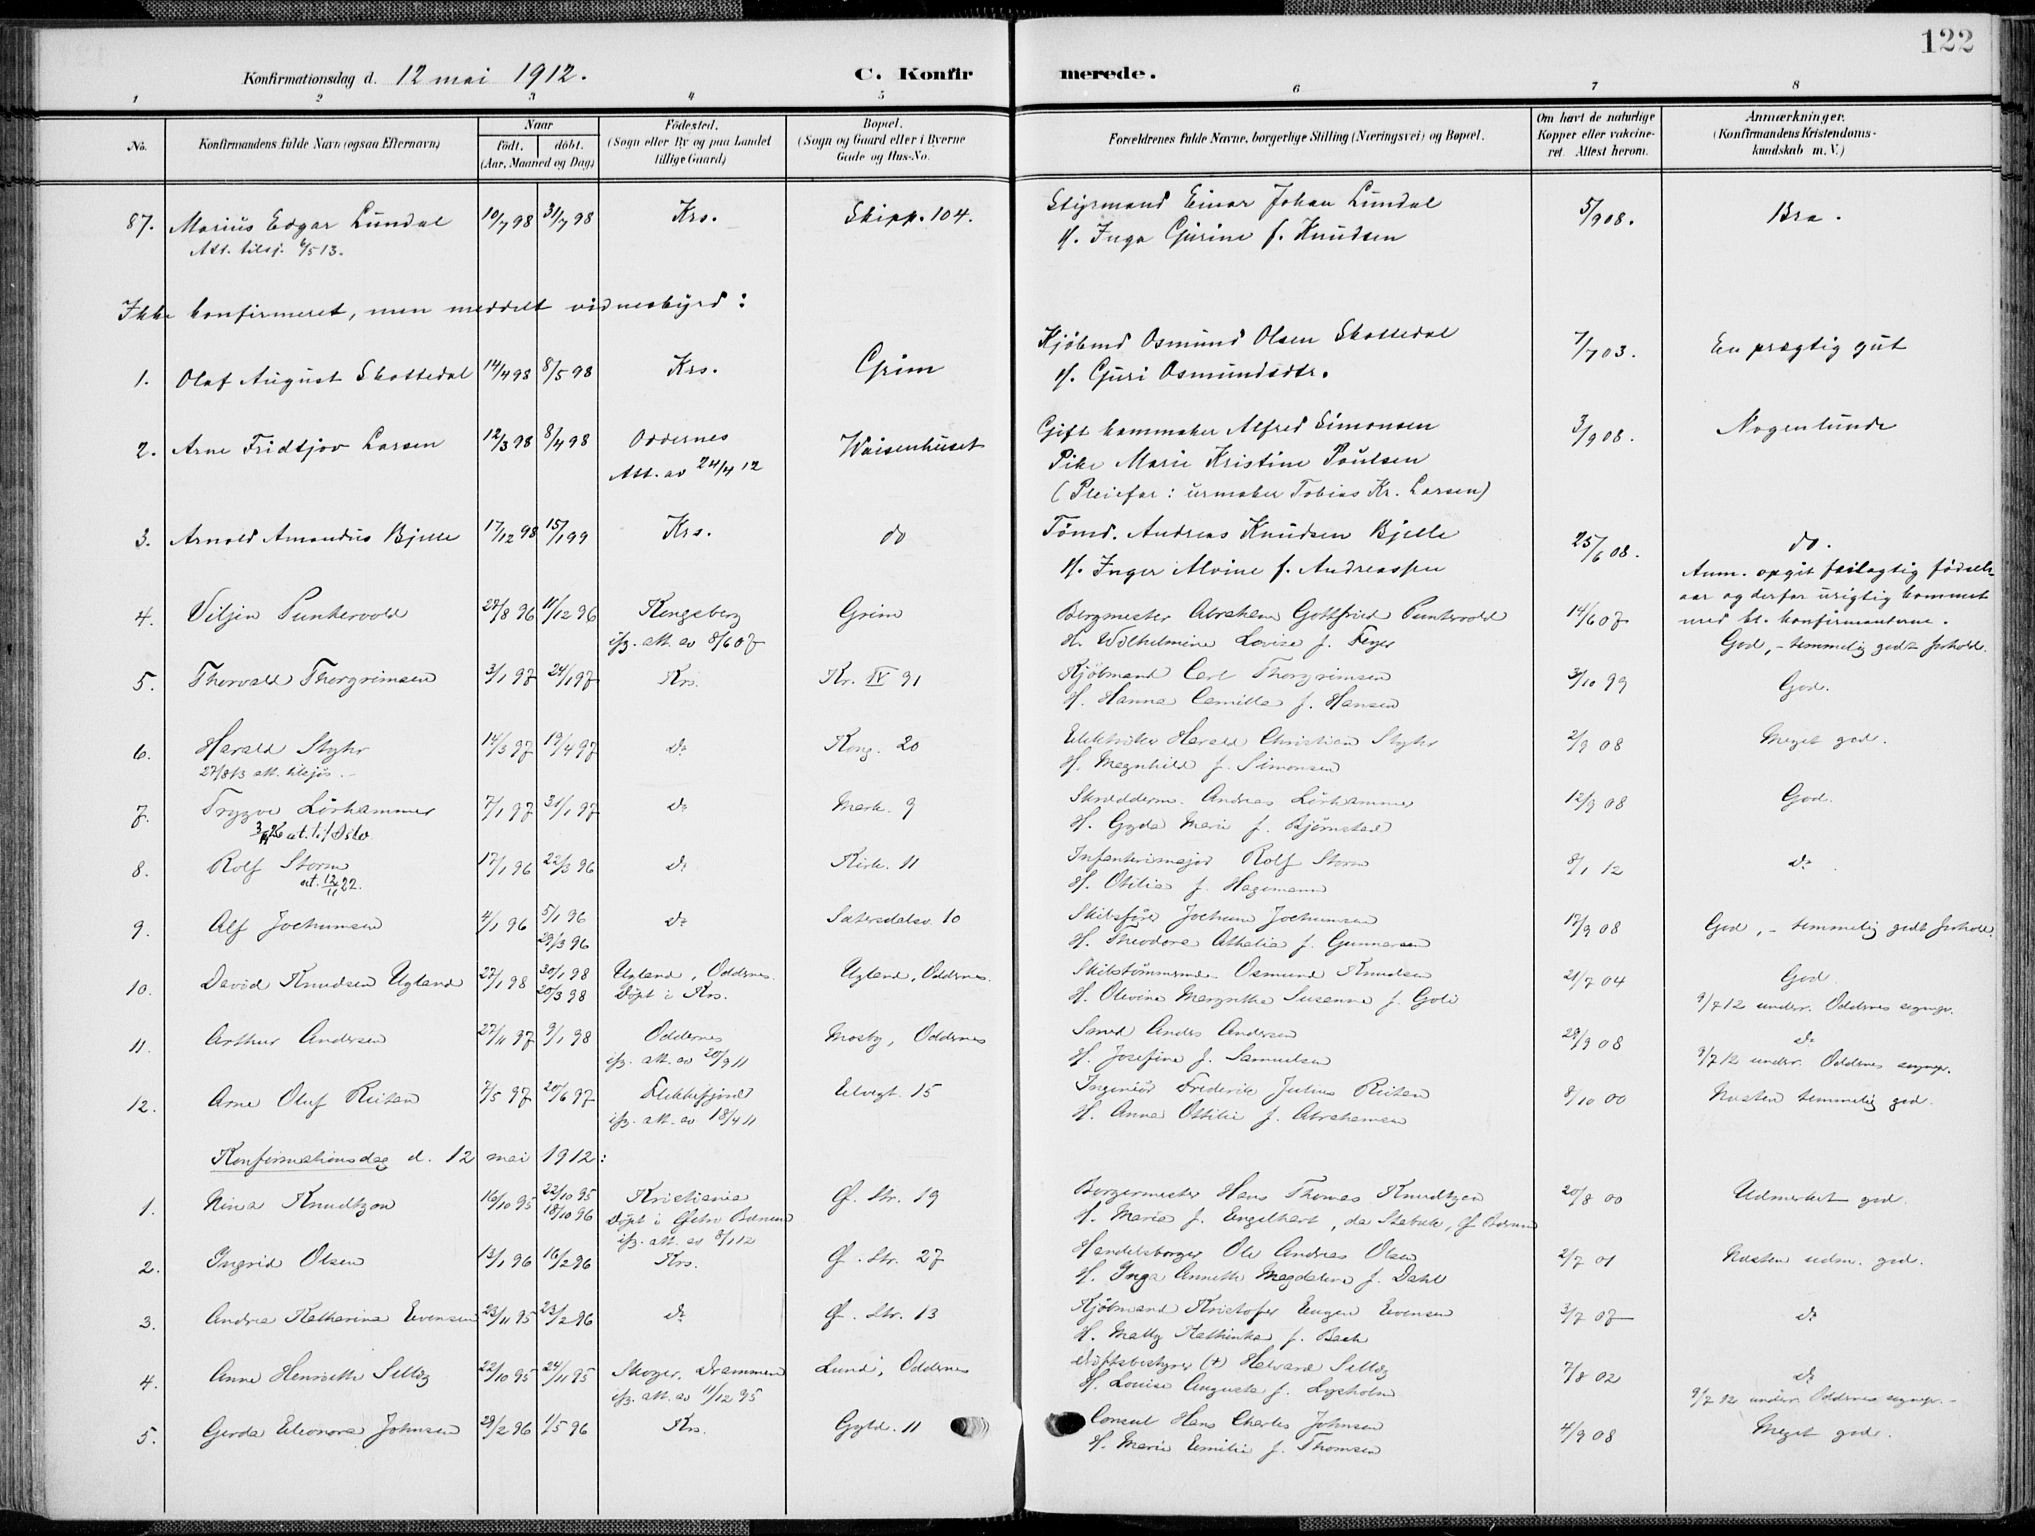 122
Konfirmationsdag d. 12 mai 1912. C. Konfirmerede.
1 2 3 4 5 6 7 8
No. Konfirmandens fulde Navn (ogsaa Efternavn) Naar født. døbt. (Aar, Maaned og Dag) Fødested. (Sogn eller By og paa Landet tillige Gaard) Bopæl. (Sogn og Gaard eller i Byerne Gade og Hus-No. Forældrenes fulde Navne, borgerlige Stilling (Næringsvei) og Bopæl. Om havt de naturlige Kopper eller vakcineret. Attest herom. Anmærkninger. (Konfirmandens Kristendomskundskab m. V.)
87. Marius Edgar Lundal 10/7 98 31/7 98 Krs. Skipp. 104. Styrmand Einar Johan Lundal 5/9 08. Bra.
Att. tilsj. 6/5 13. H. Inga Gurine f. Knudsen
Ikke konfirmeret, men meddelt vidnesbyrd:
1. Olaf August Skottedal 14/4 98 8/5 98 Krs. Grim Kjøbmd Osmund Olsen Skottedal 7/7 03. En prægtig gut
H. Guri Osmundsdtr.
2. Arne Fridtjov Larsen 12/3 98 8/4 98 Oddernes Waisenhuset Gift kammaker Alfred Simonsen 3/9 08. Nogenlunde
Att. av 24/4 12 Pike Marie Kristine Poulsen
(Pleiefar: urmaker Tobias Kr. Larsen)
3. Arnold Amandus Bjelle 17/12 98 15/1 99 Krs. do Tømd. Andreas Knudsen Bjelle 25/6 08. do.
H. Inger Alvine f. Andreassen Anm. opgit feilagtig fødselsaar og derfor urigtig kommet med bl. konfirmanterne.
4. Viljen Puntervold 28/8 96 11/12 96 Kongsberg Grim Bergmester Abraham Gottfried Puntervold 14/6 07
iflg. att. av 8/6 07 H. Wilhelmine Lovise f. Feyer God, - temmelig godt forhold.
5. Thorvald Thorgrimsen 3/1 97 24/1 97 Krs. Kr. IV 91 Kjøbmand Carl Thorgrimsen 3/10 99 God.
H. Hanna Camilla f. Hansen
6. Harald Styhr 14/3 97 19/4 97 do Kong. 20 Elektriker Harald Christian Styhr 2/9 08 Meget god.
27/8 13 att. tilsjøs. - H. Magnhild f. Simonsen
7. Trygve Lørhammer 7/1 97 31/1 97 do Mark. 9 Skrædderm. Andreas Lørhammer 12/9 08 God.
att. til Oslo H. Gyda Marie f. Bjørnstad
8. Rolf Storm 17/1 96 22/3 96 do Kirk. 11 Infanterimajor Rolf Storm 8/1 12 do
att. 12/11 22. H. Otilia f. Hagemann
9. Alf Jochumsen 4/1 96 5/1 96 do Sætersdalsv. 10 Skibsfører Jochum Jochumsen 17/9 08 God, - temmelig godt forhold.
29/3 96 H. Theodora Athalia f. Gunnarsen
10. David Knudsen Ugland 27/1 98 30/1 98 Ugland, Oddernes. Ugland, Oddernes. Skibstømmerm. Osmund Knudsen 21/7 04 God
20/3 98 Døpt i Krs. H. Olevine Margrethe Susanne f. Goli 9/7 12 underr. Oddernes sognepr.
11. Arthur Andersen 27/11 97 9/1 98 Oddernes Mosby, Oddernes Smed Anders Andersen 29/9 08 do
iflg. att. av 20/9 11 H. Josefine f. Samuelsen 9/7 12 underr. Oddernes sognepr.
12. Arne Oluf Reitan 7/5 97 20/6 97 Flekkefjord Elvegt. 15 Ingeniør Frederik Julius Reitan 8/10 00 Næsten temmelig god.
iflg. att. av 18/4 11 H. Anna Ottilie f. Abrahamsen
Konfirmationsdag d. 12 mai 1912:
1. Nina Knudtzon 16/10 95 22/10 95 Kristiania Ø. Str. 19 Borgermester Hans Thomas Knudtzon 20/8 00 Udmerket god.
18/10 96 Døpt i Østre Bærum H. Maria f. Engelhart, da Stabæk, Ø. Bærum
iflg. att. av 8/1 12
2. Ingrid Olsen 13/1 96 16/2 96 Krs. Ø. Str. 27 Handelsborger Ole Andreas Olsen 2/7 01 Næsten udm. god.
H. Inga Annette Magdalena f. Dahl
3. Andrea Katharina Evensen 23/11 95 23/2 96 do Ø. Str. 13 Kjøbmand Kristofer Eugen Evensen 3/7 07 do
H. Mally Kathinka f. Bach
4. Anne Henriette Selteg 22/10 95 24/11 95 Skoger, Drammen Lund, Oddernes Driftsbestyrer (+) Halvard Selteg 7/8 02 do
iflg. att. av 11/12 95 H. Louise Augusta f. Lysholm 9/7 12 underr. Oddernes sognepr. -
5. Gerda Eleonora Johnsen 29/2 96 1/5 96 Krs. Gyld. 11 Consul Hans Charles Johnsen 4/9 08 Meget god.
H. Marie Emilie f. Thomsen